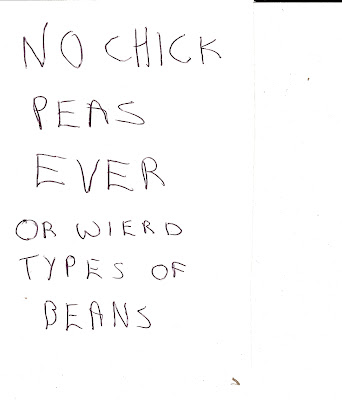 NO CHICK
PEAS
EVER
OR WIERD
TYPES OF
BEANS